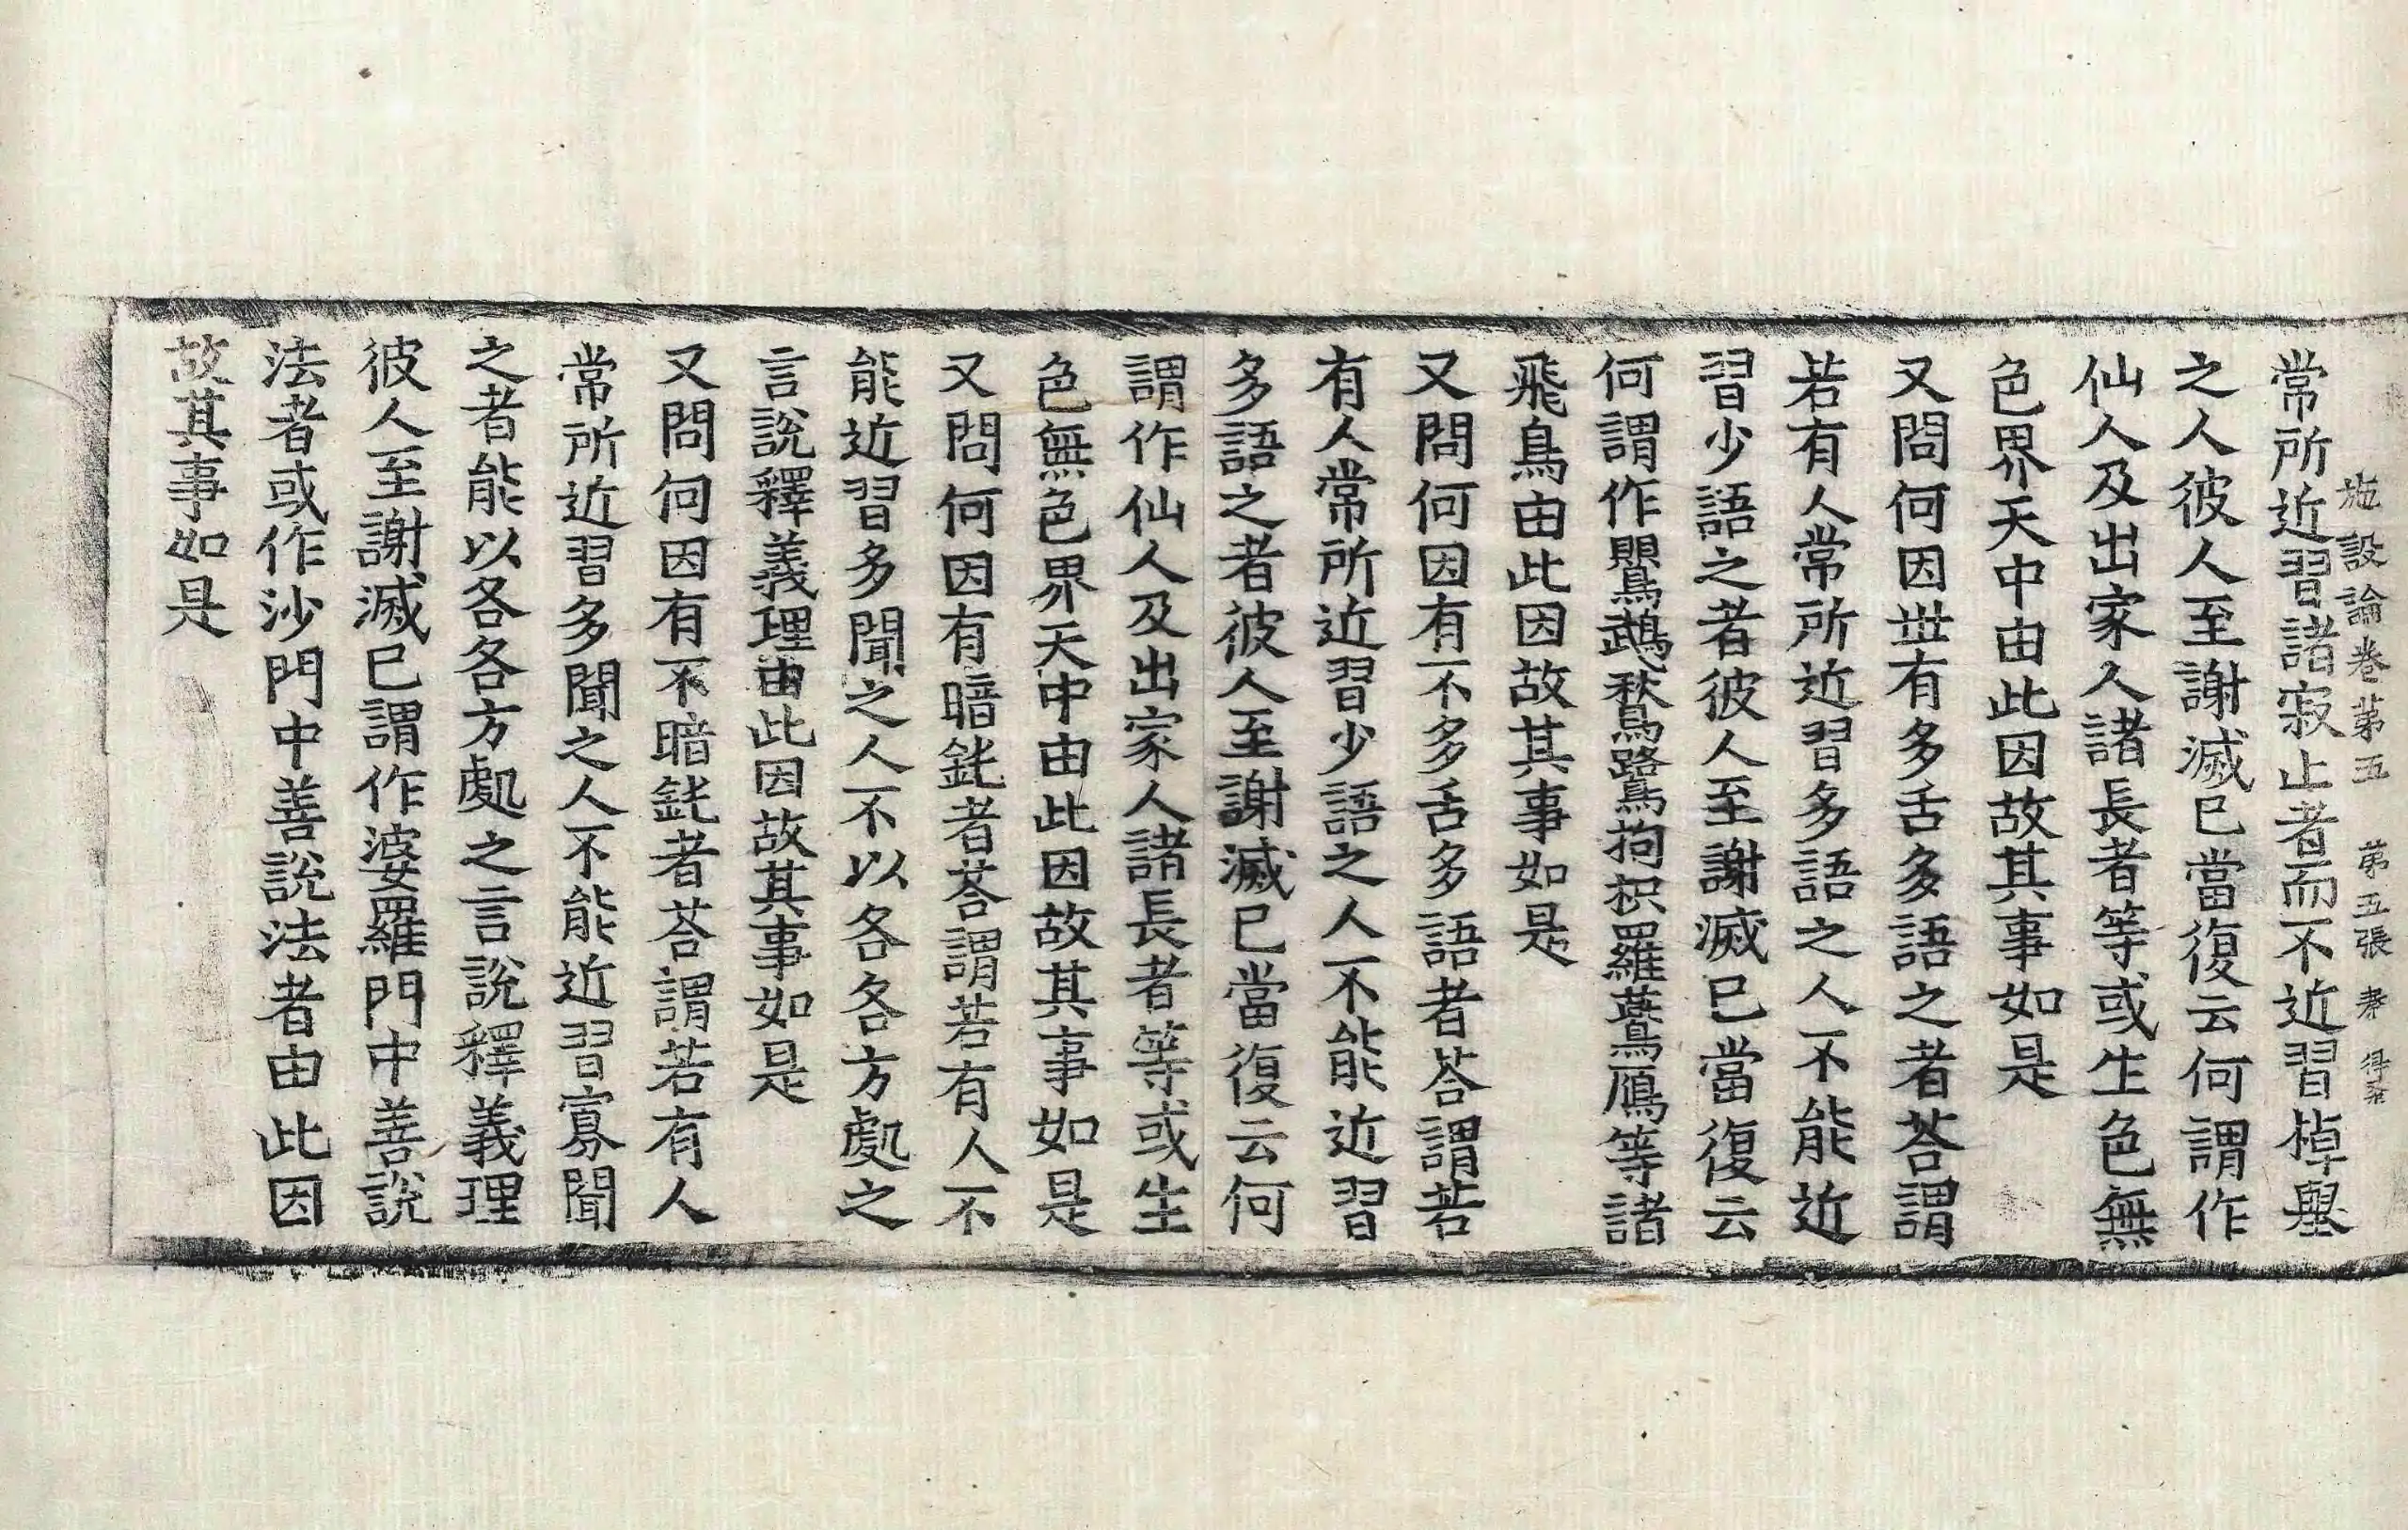 施設論卷第五 第五張 孝 得奇
常所近習諸寂止者而不近習掉舉
之人彼人至謝滅已當復云何謂作
仙人及出家人諸長者等或生色無
色界天中由此因故其事如是
又問何因世有多舌多語之者荅謂
若有人常所近習多語之人不能近
習少語之者彼人至謝滅已當復云
何謂作鸎鵡鶖鷺拘枳羅鷰鴈等諸
飛鳥由此因故其事如是
又問何因有不多舌多語者荅謂若
有人常所近習少語之人不能近習
多語之者彼人至謝滅已當復云何
謂作仙人及出家人諸長者等或生
色無色界天中由此因故其事如是
又問何因有暗鈍者荅謂若有人不
能近習多聞之人不以各各方處之
言說釋義理由此因故其事如是
又問何因有不暗鈍者荅謂若有人
常所近習多聞之人不能近習寡聞
之者能以各各方處之言說釋義理
彼人至謝滅已謂作婆羅門中善說
法者或作沙門中善說法者由此因
故其事如是